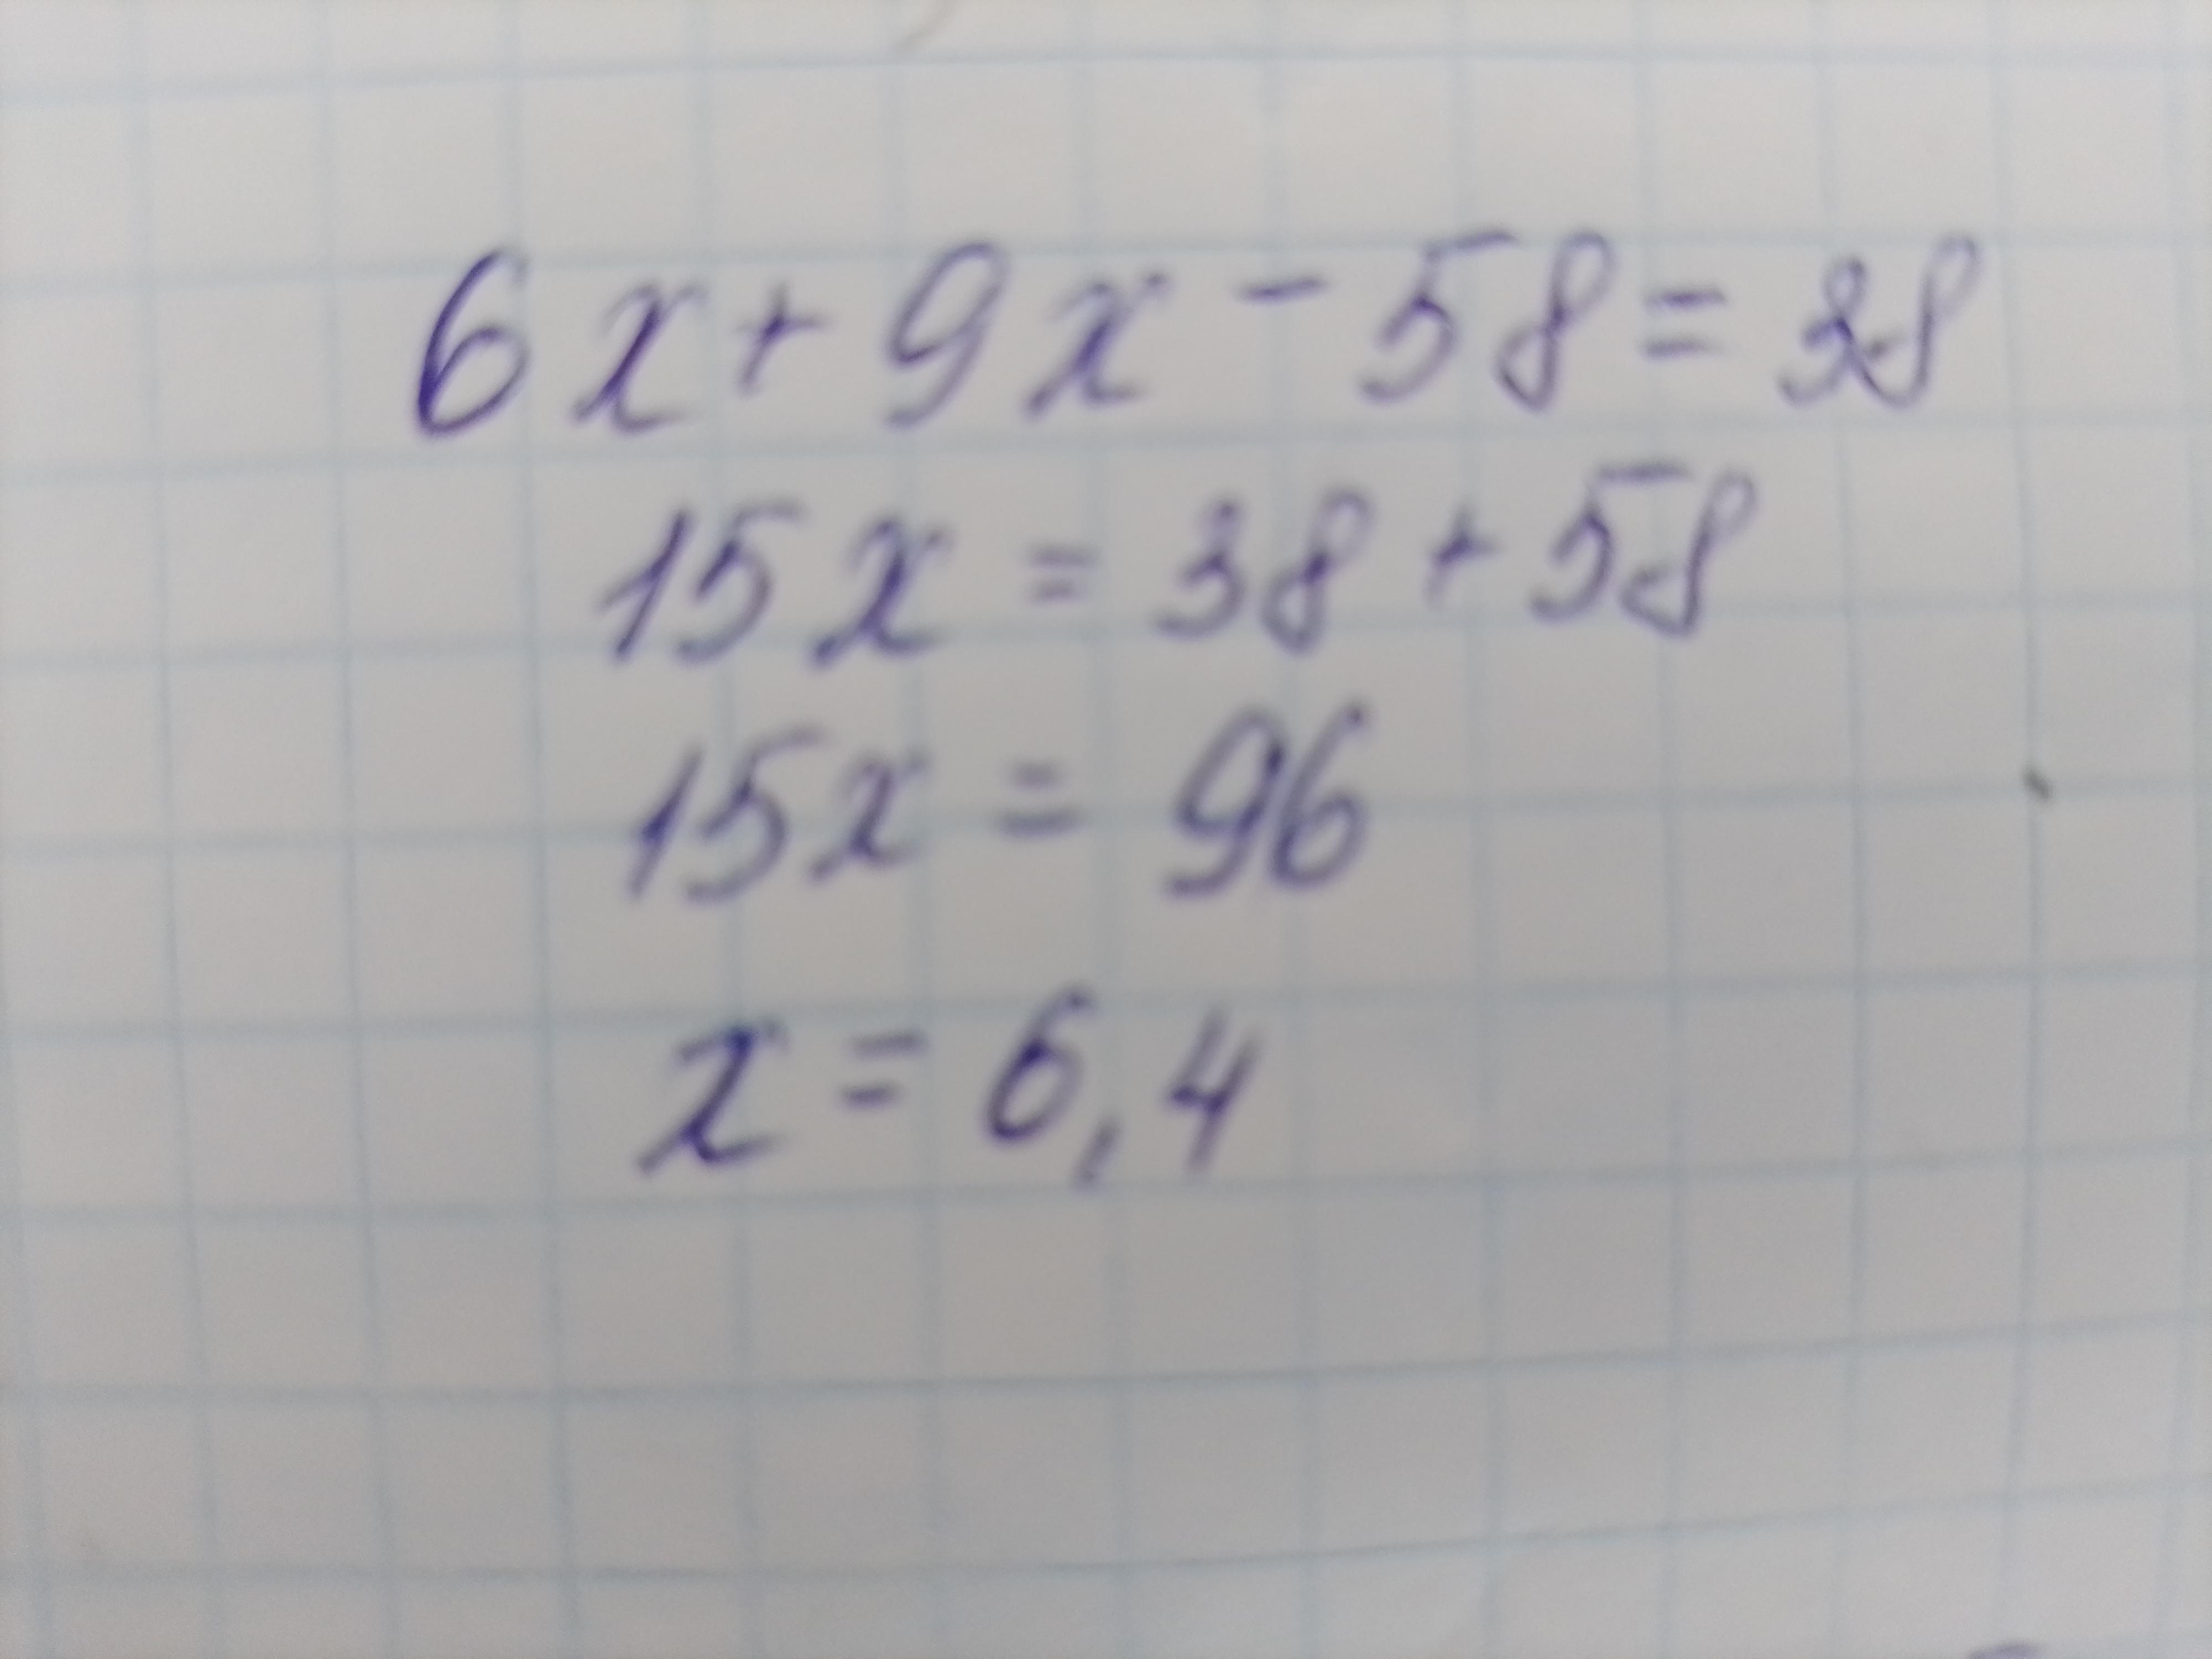 6x + 9x - 58 = 38
15x = 38 + 58
15x = 96
x = 6,4